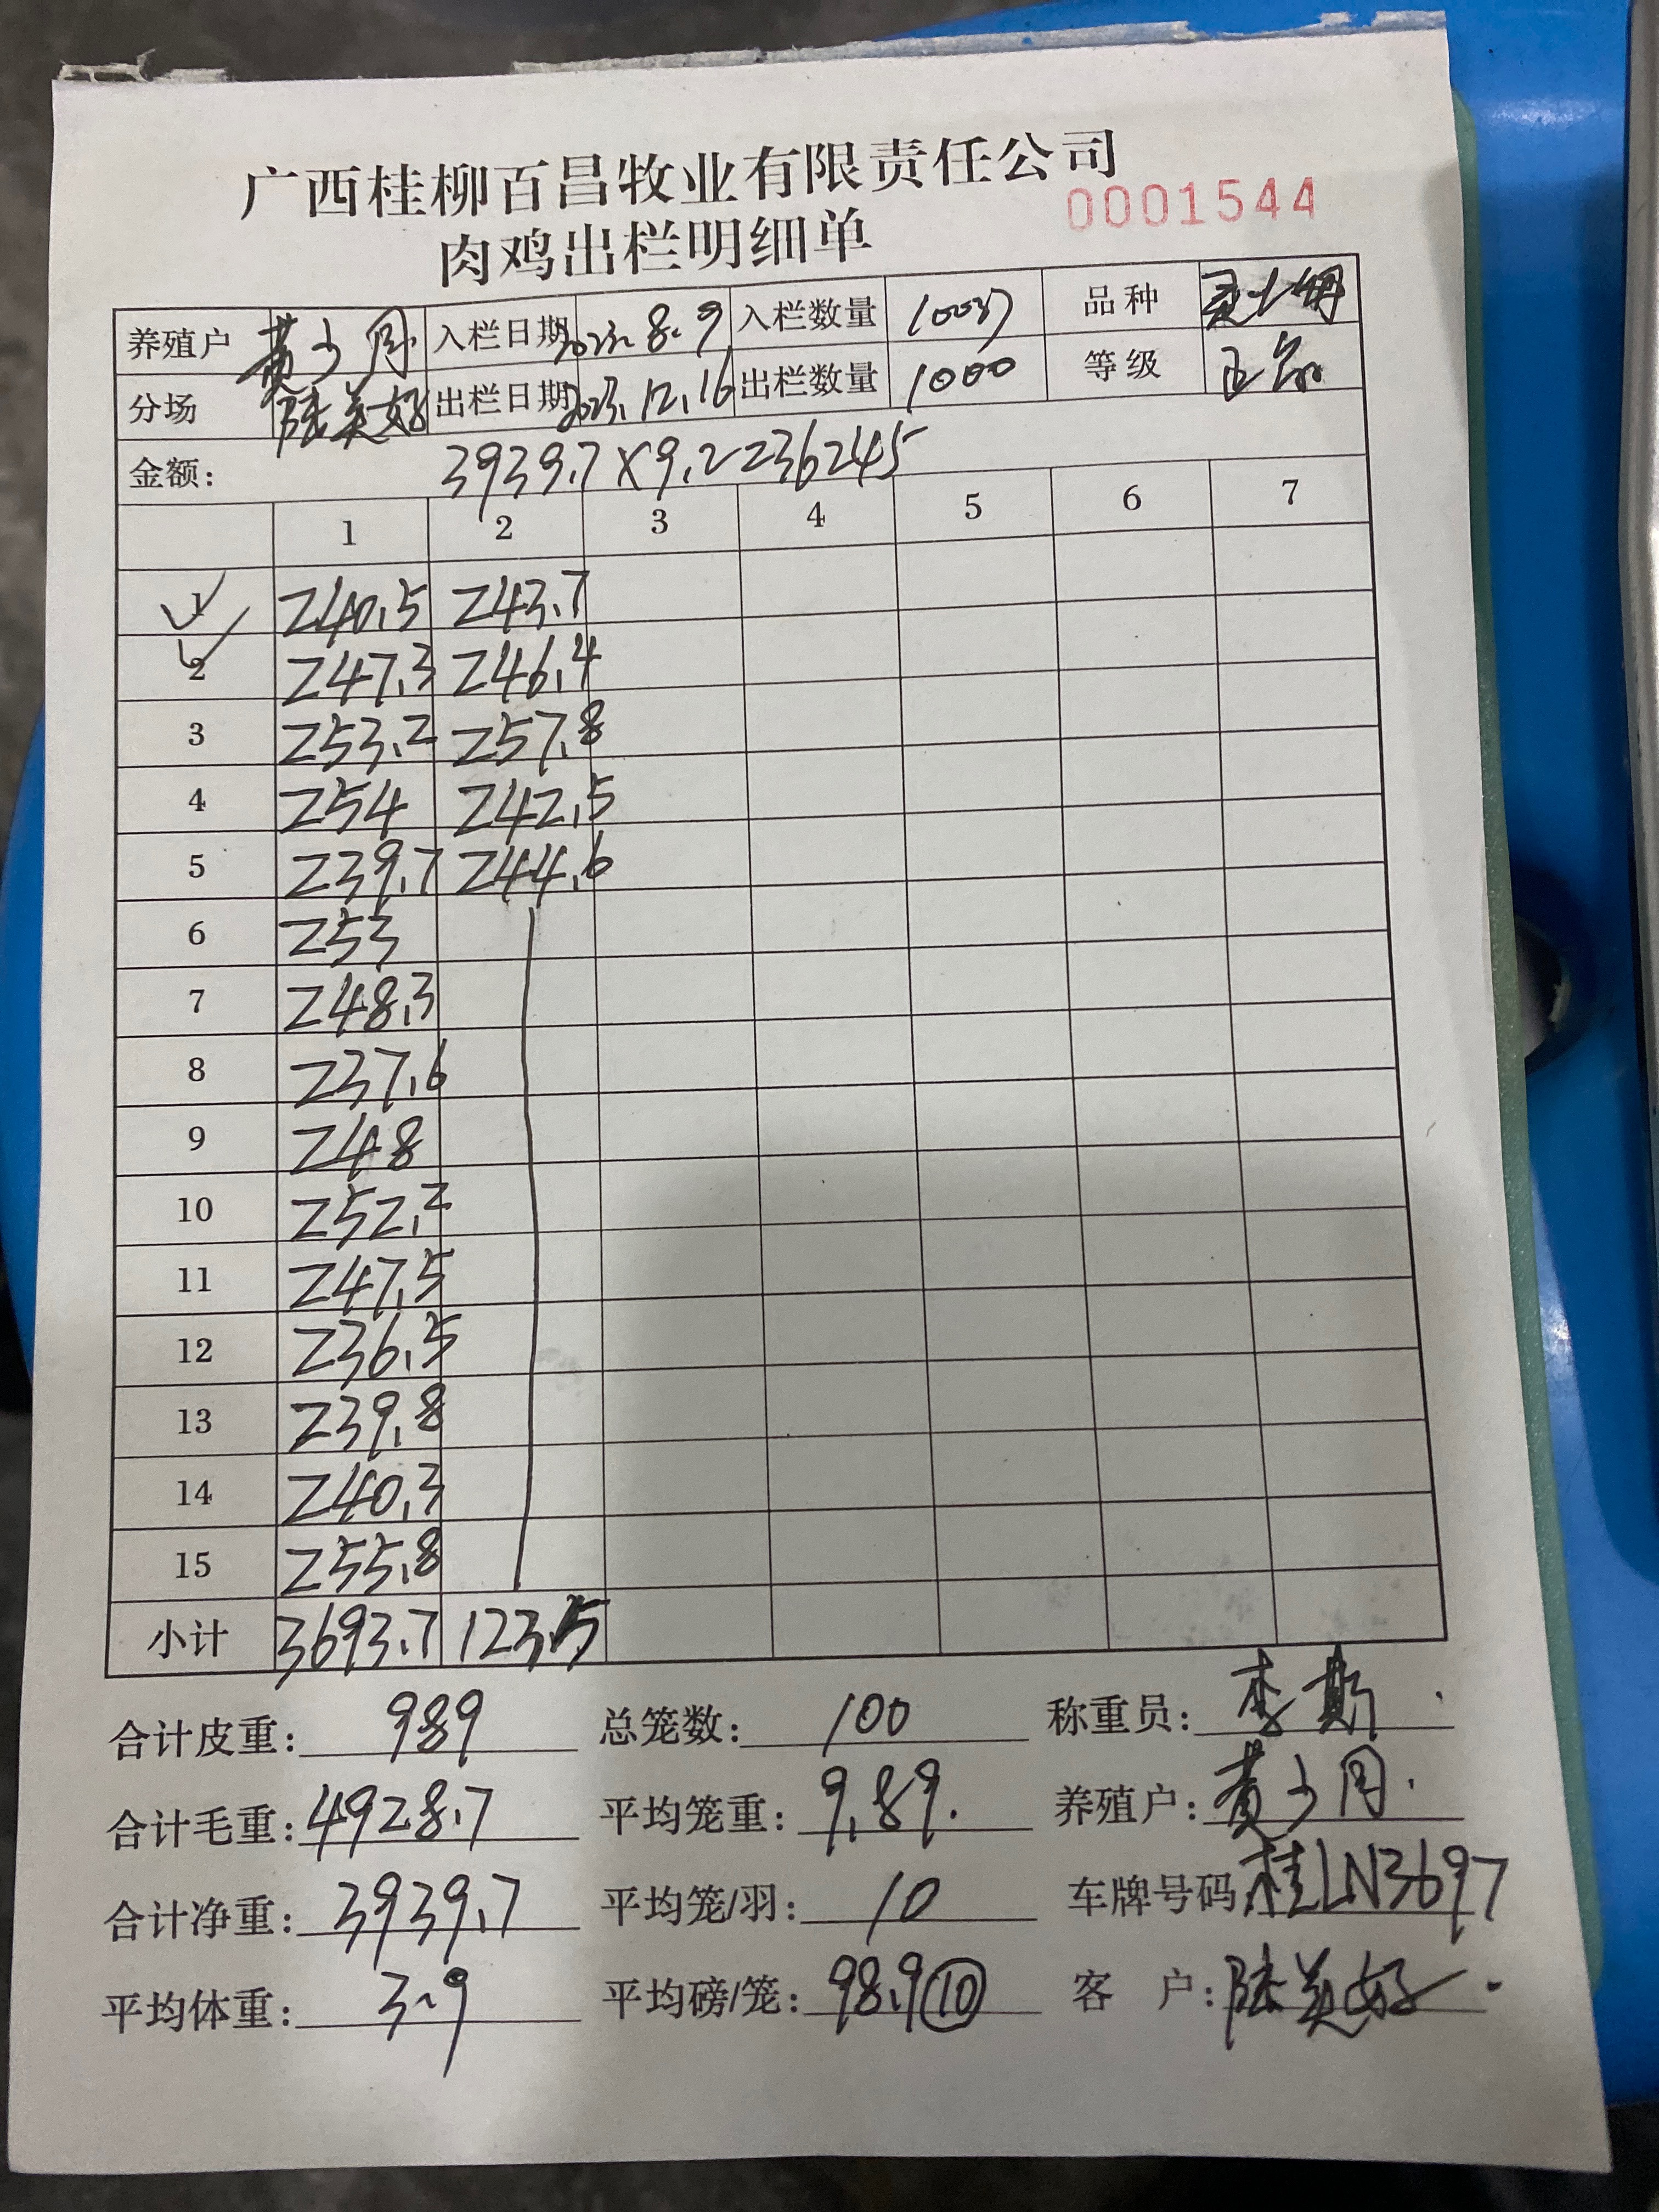 广西桂柳百昌牧业有限责任公司
0001544
肉鸡出栏明细单
养殖户 黄少周 入栏日期 2023.8.9 入栏数量 品种
分场 陆美好 出栏日期 2023.12.16 出栏数量 1000 等级 正品
金额: 3939.7×9.2=36245
1 2 3 4 5 6 7
1 240.5 243.7
2 247.3 246.4
3 253.2 257.8
4 254 242.5
5 239.7 244.6
6 253
7 248.3
8 237.6
9 248
10 252.2
11 247.5
12 236.5
13 239.8
14 240.3
15 255.8
小计 3693.7 1235
合计皮重: 989 总笼数: 100 称重员: 李斯
合计毛重: 4928.7 平均笼重: 9.89. 养殖户: 黄少周.
合计净重: 3939.7 平均笼/羽: 10 车牌号码 桂LN3697
平均体重: 3.9 平均磅/笼: 98.9⑩ 客户: 陆美好.